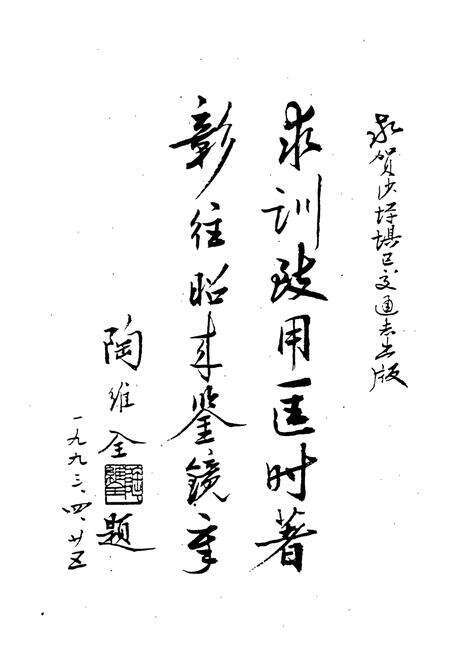 敬贺沙坪埧区交通志出版
求训致用匡时著
彰往昭来鉴镜章
陶维全题
一九九三、四、廿五